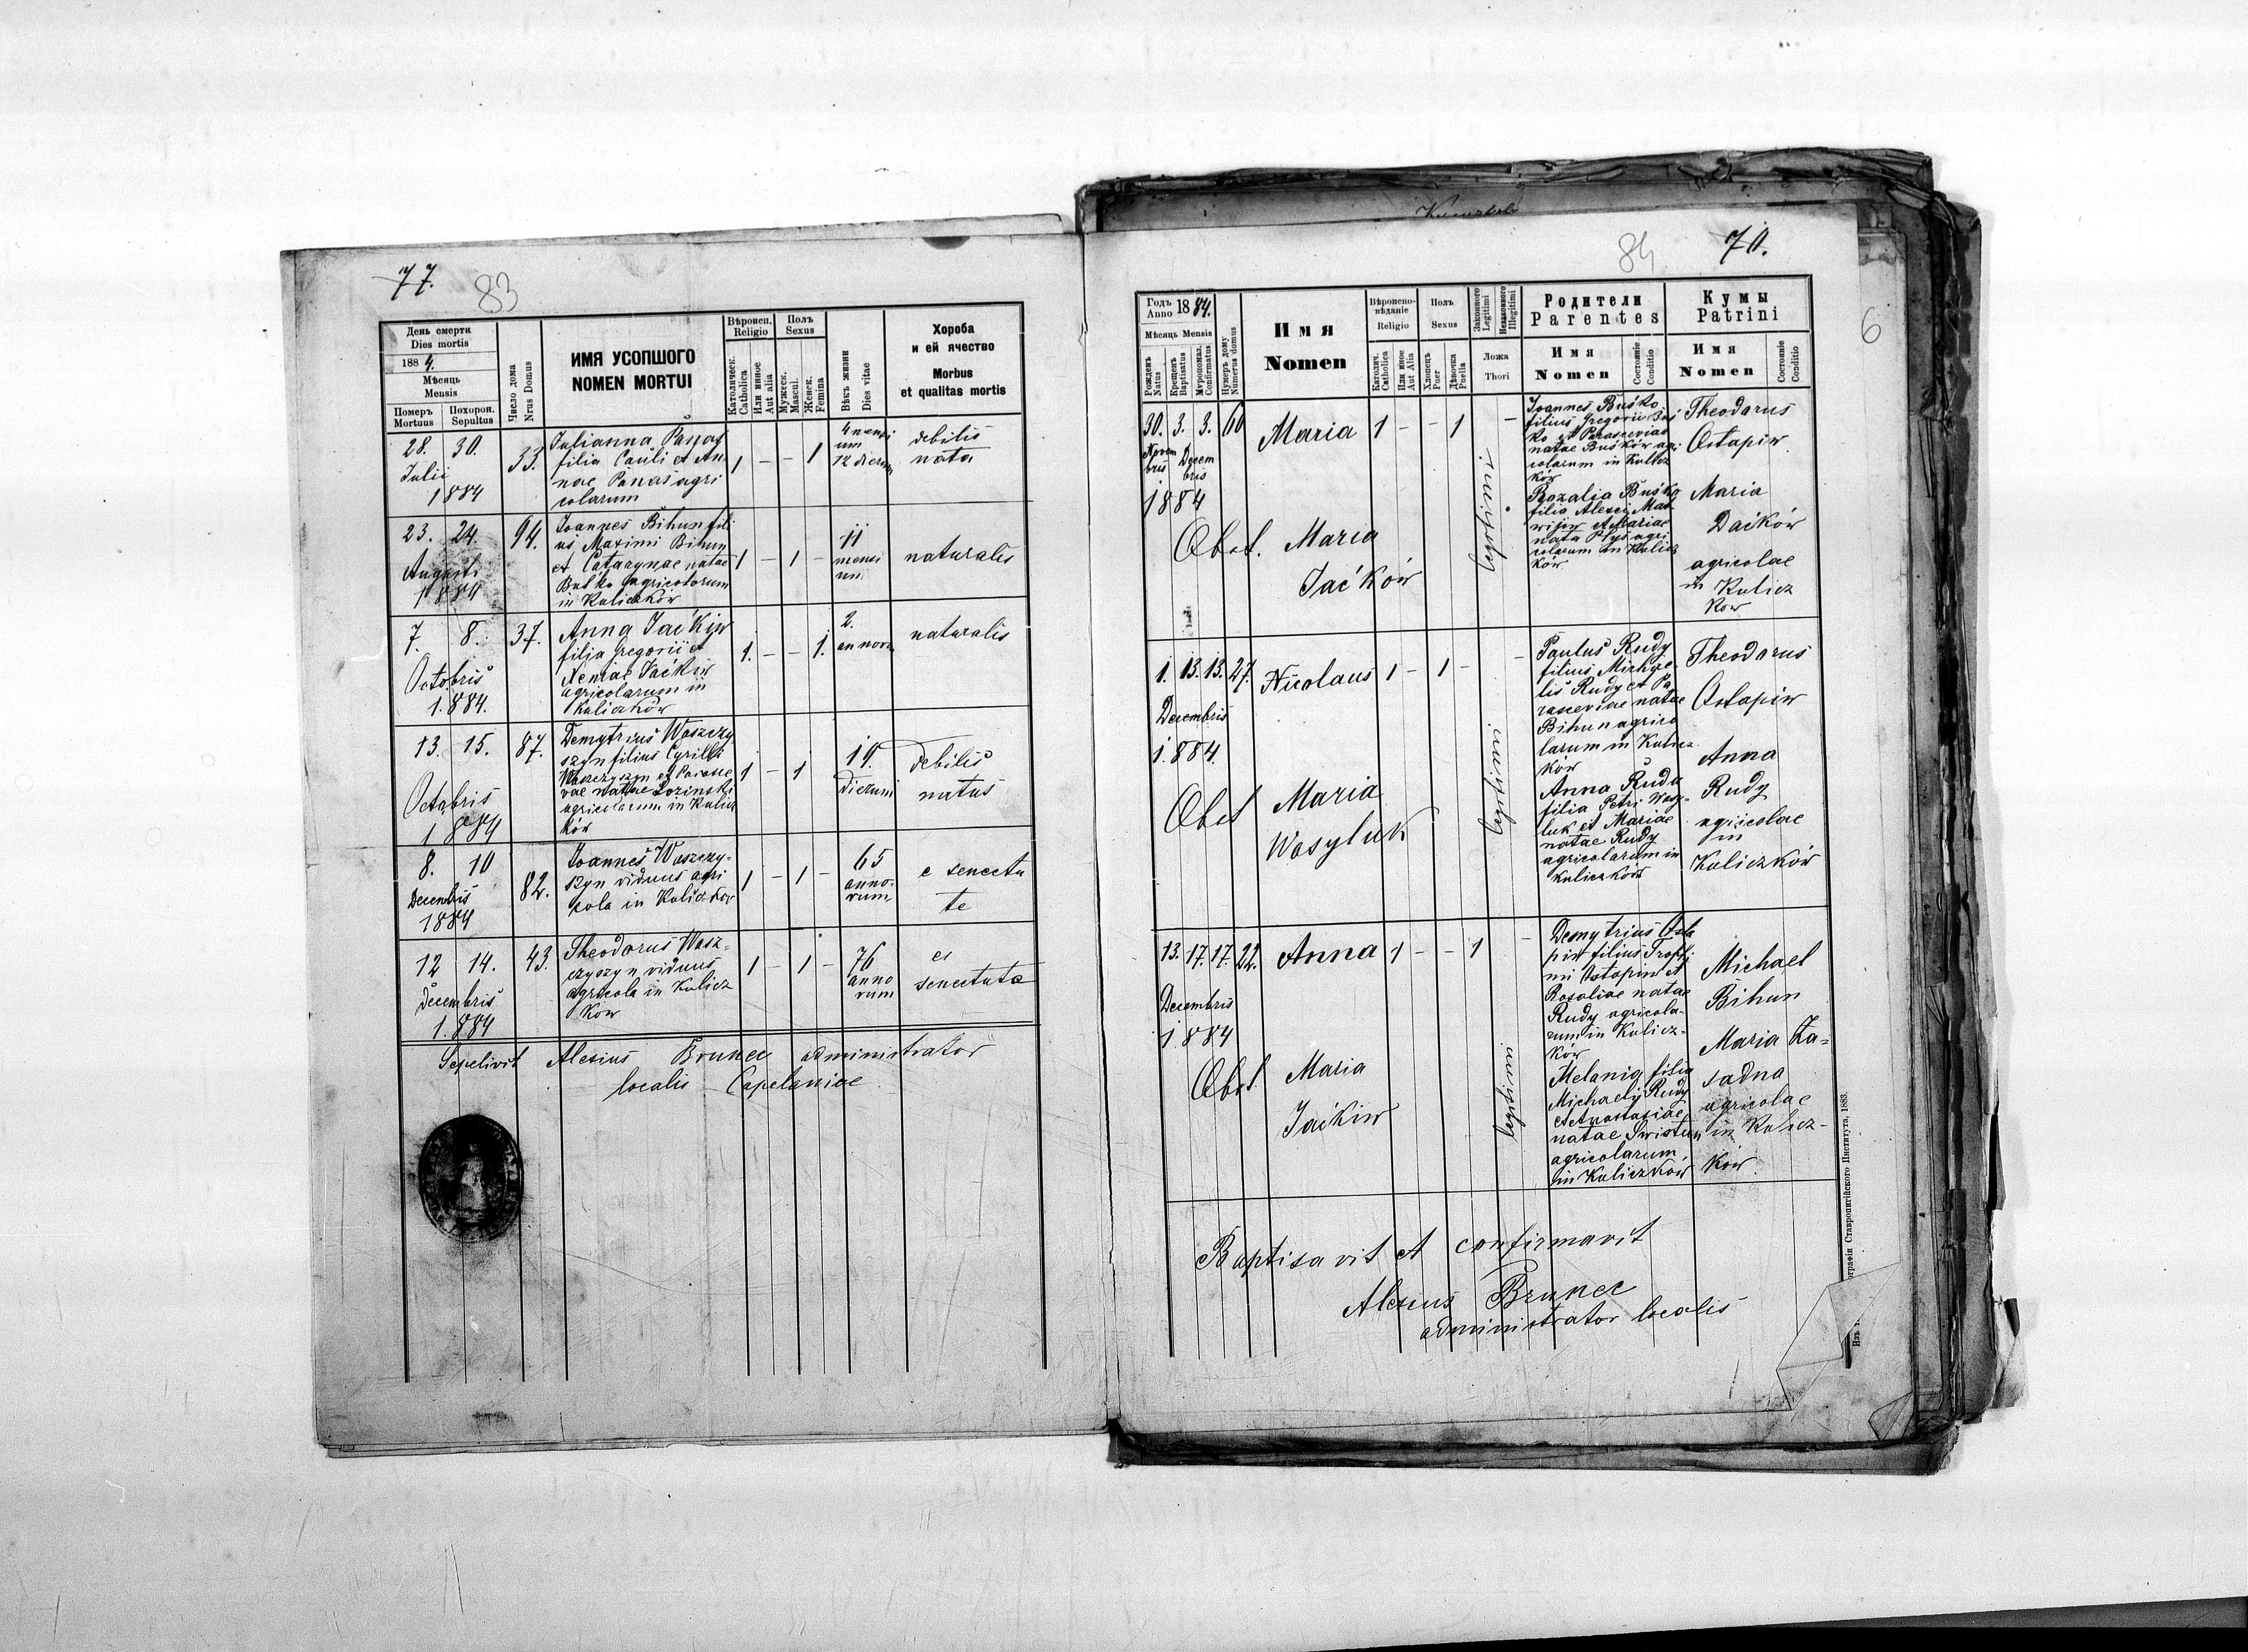 77.
83
День смерти
Dies mortis
1884.
Мѣсяць
Mensis
Померъ
Mortuus
Похорон.
Sepultus
Число дома
Nrus Domus
ИМЯ УСОПШОГО
NOMEN MORTUI
Вѣроисп.
Religio
Католическ.
Catholica
Или инное
Aut alia
Полъ
Sexus
Мужеск.
Mascul.
Женск.
Femina
Вѣкъ жизни
Dies vitae
Хороба
и ей ячество
Morbus
et qualitas mortis
28. 30.
Julii
1884
33.
Julianna
filia Pauli et An
nae Panas agri
colarum
1 – – 1
4 mensi
um
12 dierum
debilis
nata
23. 24.
Augusti
1884
94.
Joannes Bihun fili
us Maximi Bihun
et Catarynae natae
Buśko agricolarum
in Kuliczków
1 – 1 –
11
mensi
um
naturalis
7. 8.
Octobris
1.884.
37.
Anna Jaćkiw
filia Gregorii et
Jaćkiw
agricolarum in
Kuliczków
1. – – 1.
2.
annorum
naturalis
13. 15.
Octobris
1 884
87.
Demytrius Woszczy
szyn filius Cyrilli
Woszczyszyn et Parasce
vae natae Łozinski
agricolarum in Kulicz
ków
1 – 1
19.
dierum
debilis
natus
8. 10
Decembris
1884
82.
Joannes Woszczy-
szyn viduus agri
cola in Kuliczkow
1 – 1 –
65
anno-
rum
e senectu
te
12 14.
Decembris
1.884
43.
Theodorus Wosz=
czyszyn viduus
agricola in Kulicz
kow
1 – 1 –
76
anno
rum
ex
senectute
Sepelivit Alexius Brunec administrator
localis Capelaniae
84
70.
6
Годъ
Anno 1884.
Мѣсяць Mensis
Рожденъ
Natus
Крещенъ
Baptisatus
Мѵропомаз.
Confirmatus
Нумеръ дому
Numerus domus
Имя
Nomen
Вѣроиспо-
вѣданіе
Religio
Католич.
Catholica
Или инное
Aut Alia
Полъ
Sexus
Хлопецъ
Puer
Дѣвочка
Puella
Законного
Legitimi
Незаконного
Illegitimi
Ложа
Thori
Родители
Parentes
Имя
Nomen
Состояніе
Conditio
Кумы
Patrini
Имя
Nomen
Состояніе
Conditio
30. 3. 3. 60
Novem
bris
Decem
bris
1884
Maria
1 – – 1
legitimi
–
Joannes Buśko
filius Gregorii Buś
ko et Parasceviae
natae Buśków agri
colarum in Kulicz
ków
Rozalia Buśko
filia Alexei Mat
wijiw et Mariae
nata agri
colarum in Kulicz
ków
Theodorus
Ostapiw
Maria
Daćków
agricolae
in Kulicz
kow
Obst. Maria
Jaćków
1. 13. 13. 27.
Decembris
1.884.
Nicolaus
1 – 1 –
legitimi
–
Paulus Rudy
filius Michae
lis Rudy et Pa
rasceviae natae
Bihun agrico
larum in Kulicz
ków
Anna Ruda
filia Petri Wasy-
luk et Mariae
natae Rudy
agricolarum in
Kuliczków
Theodorus
Ostapiw
Anna
Rudy
agricolae
in
Kuliczków
Obst Maria
Wasyluk
13. 17. 17. 22.
Decembris
1884
Anna
1 – – 1
legitimi
–
Demytrius Osta
piw filius Trophi
mi Ostapiw et
Rosaliae natae
Rudy agricola-
rum in Kulicz-
ków
Melania filia
Michaely Rudy
et Anastasiae
natae Swistun
agricolarum
in Kuliczkow
Michael
Bihun
Maria Za=
sadna
agricolae
in Kulicz-
ków.
Obst. Maria
Jaćkiw
Baptisavit et confirmavit
Alexius Brunec
administrator localis
Ставропигійского Института, 1883.